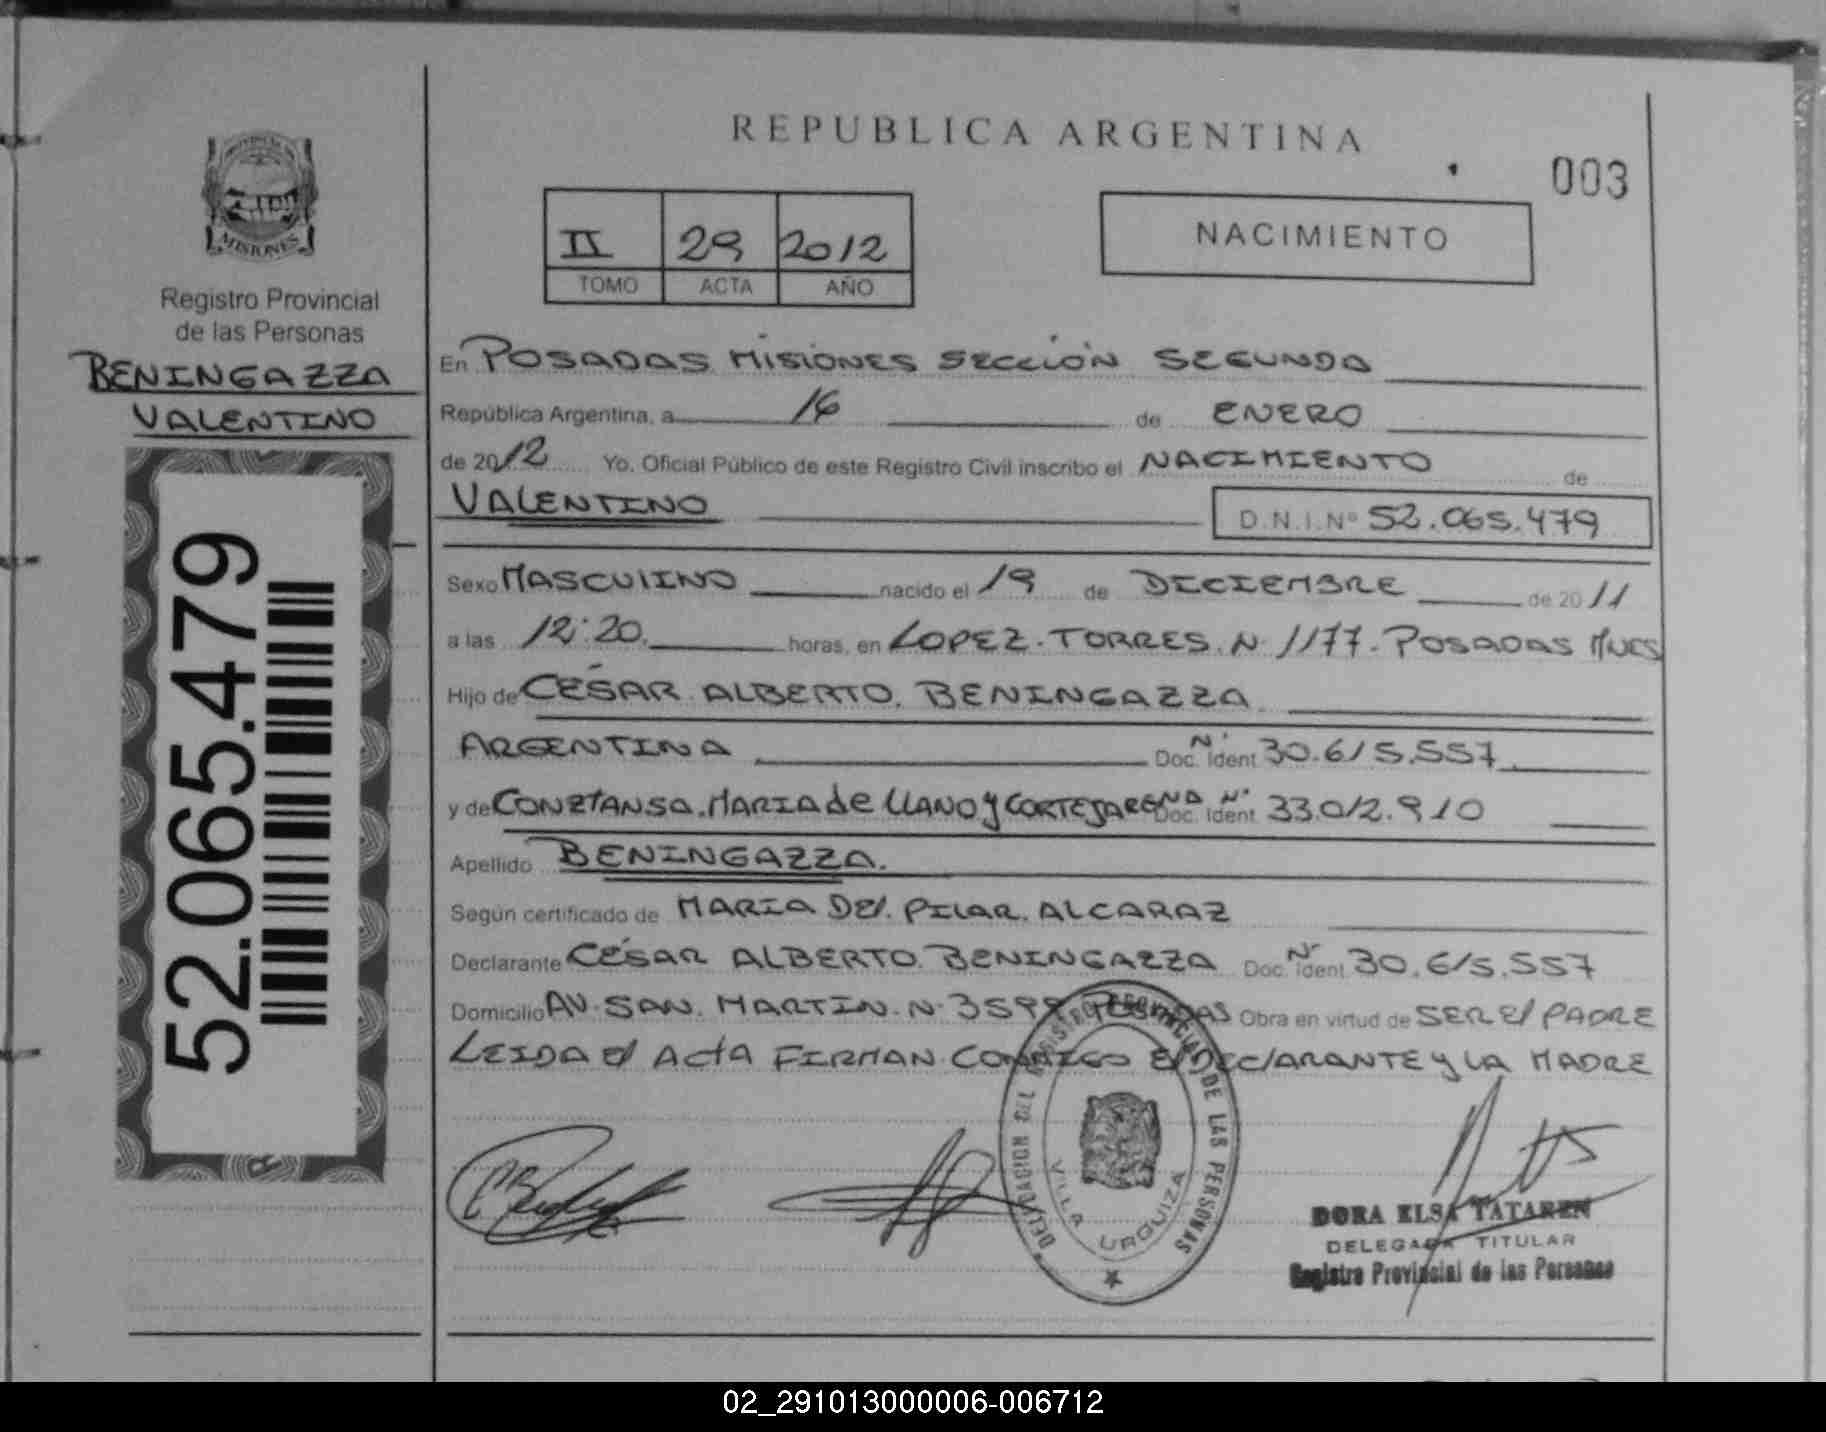 REPUBLICA ARGENTINA
003
II 29 2012
TOMO ACTA AÑO
NACIMIENTO
PROVINCIA DE
MISIONES
Registro Provincial
de las Personas
BENINGAZZA
VALENTINO
52.065.479
En POSADAS MISIONES SECCIÓN SEGUNDA
República Argentina, a 16 de ENERO
de 2012 Yo. Oficial Público de este Registro Civil inscribo el NACIMIENTO de
VALENTINO D.N.I.Nº 52.065.479
Sexo MASCULINO nacido el 19 de DICIEMBRE de 2011
a las 12:20. horas, en LOPEZ. TORRES. N. 1177. POSADAS
Hijo de CÉSAR ALBERTO. BENINGAZZA.
ARGENTINA Doc. Ident. N. 30.615.557
y de CONZTANSA. MARIA de LLANO y CORTEJARENA Doc. Ident. Nº 33.012.910
Apellido BENINGAZZA.
Según certificado de MARIA DEL PILAR. ALCARAZ
Declarante CÉSAR ALBERTO. BENINGAZZA Doc. Ident. Nº 30.615.557
Domicilio AV. SAN. MARTIN. N. 3599 POSADAS Obra en virtud de SER El PADRE
LEIDA el ACTA FIRMAN CONMIGO El DECLARANTE y LA MADRE
DELEGACION DEL REGISTRO PROVINCIAL DE LAS PERSONAS
VILLA URQUIZA
DORA ELSA TATAREN
DELEGADA TITULAR
Registro Provincial de las Personas
02_291013000006-006712